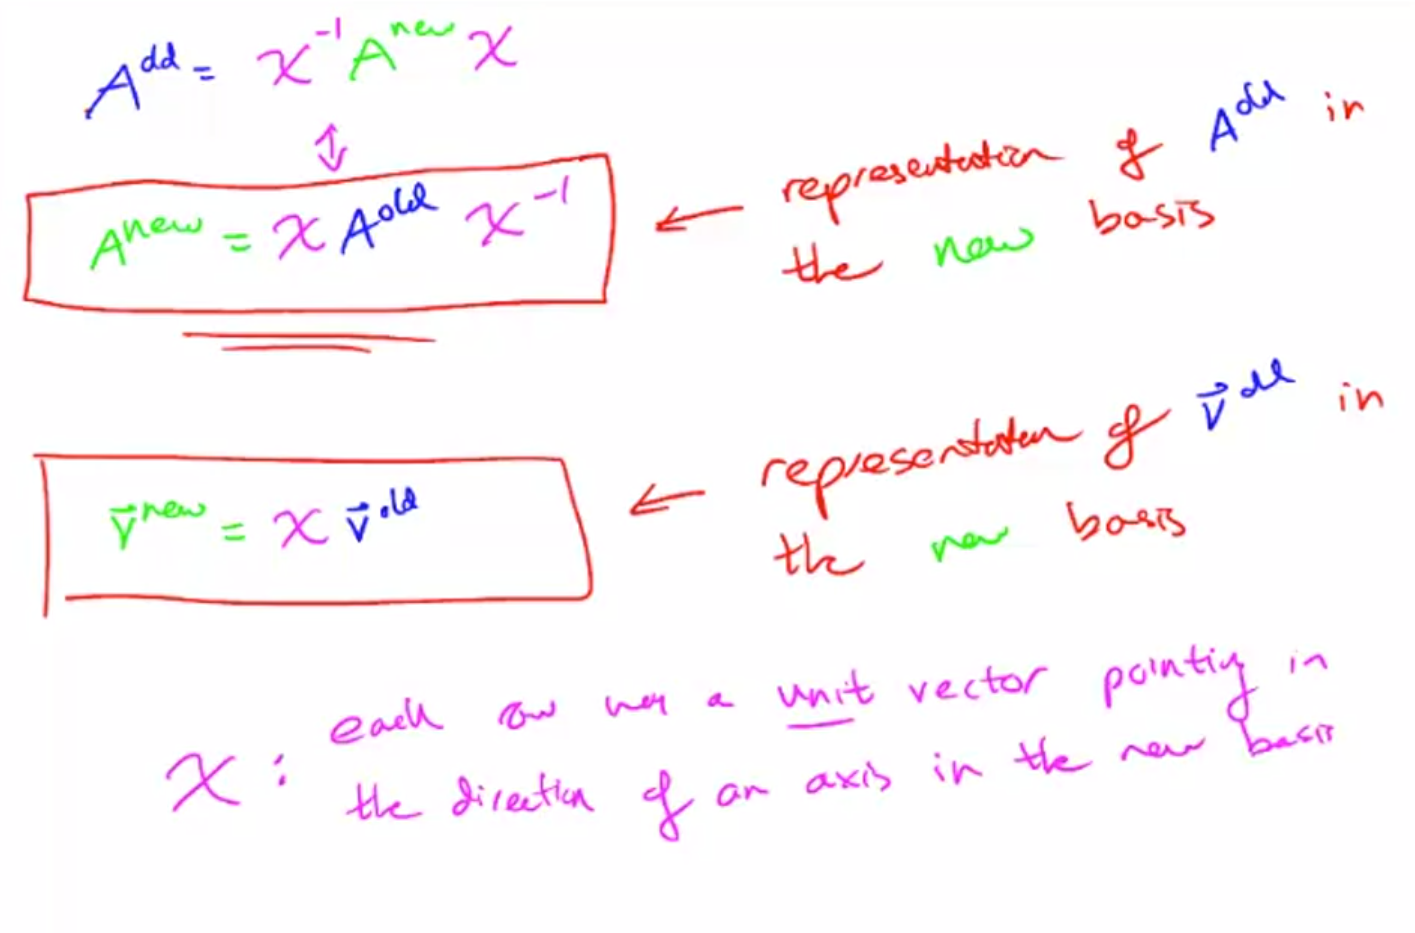 A^old = X^-1 A^new X
↕
A^new = X A^old X^-1 ← representation of A^old in
the new basis
v⃗^new = X v⃗^old ← representation of v⃗^old in
the new basis
X : each row has a unit vector pointing in
the direction of an axis in the new basis